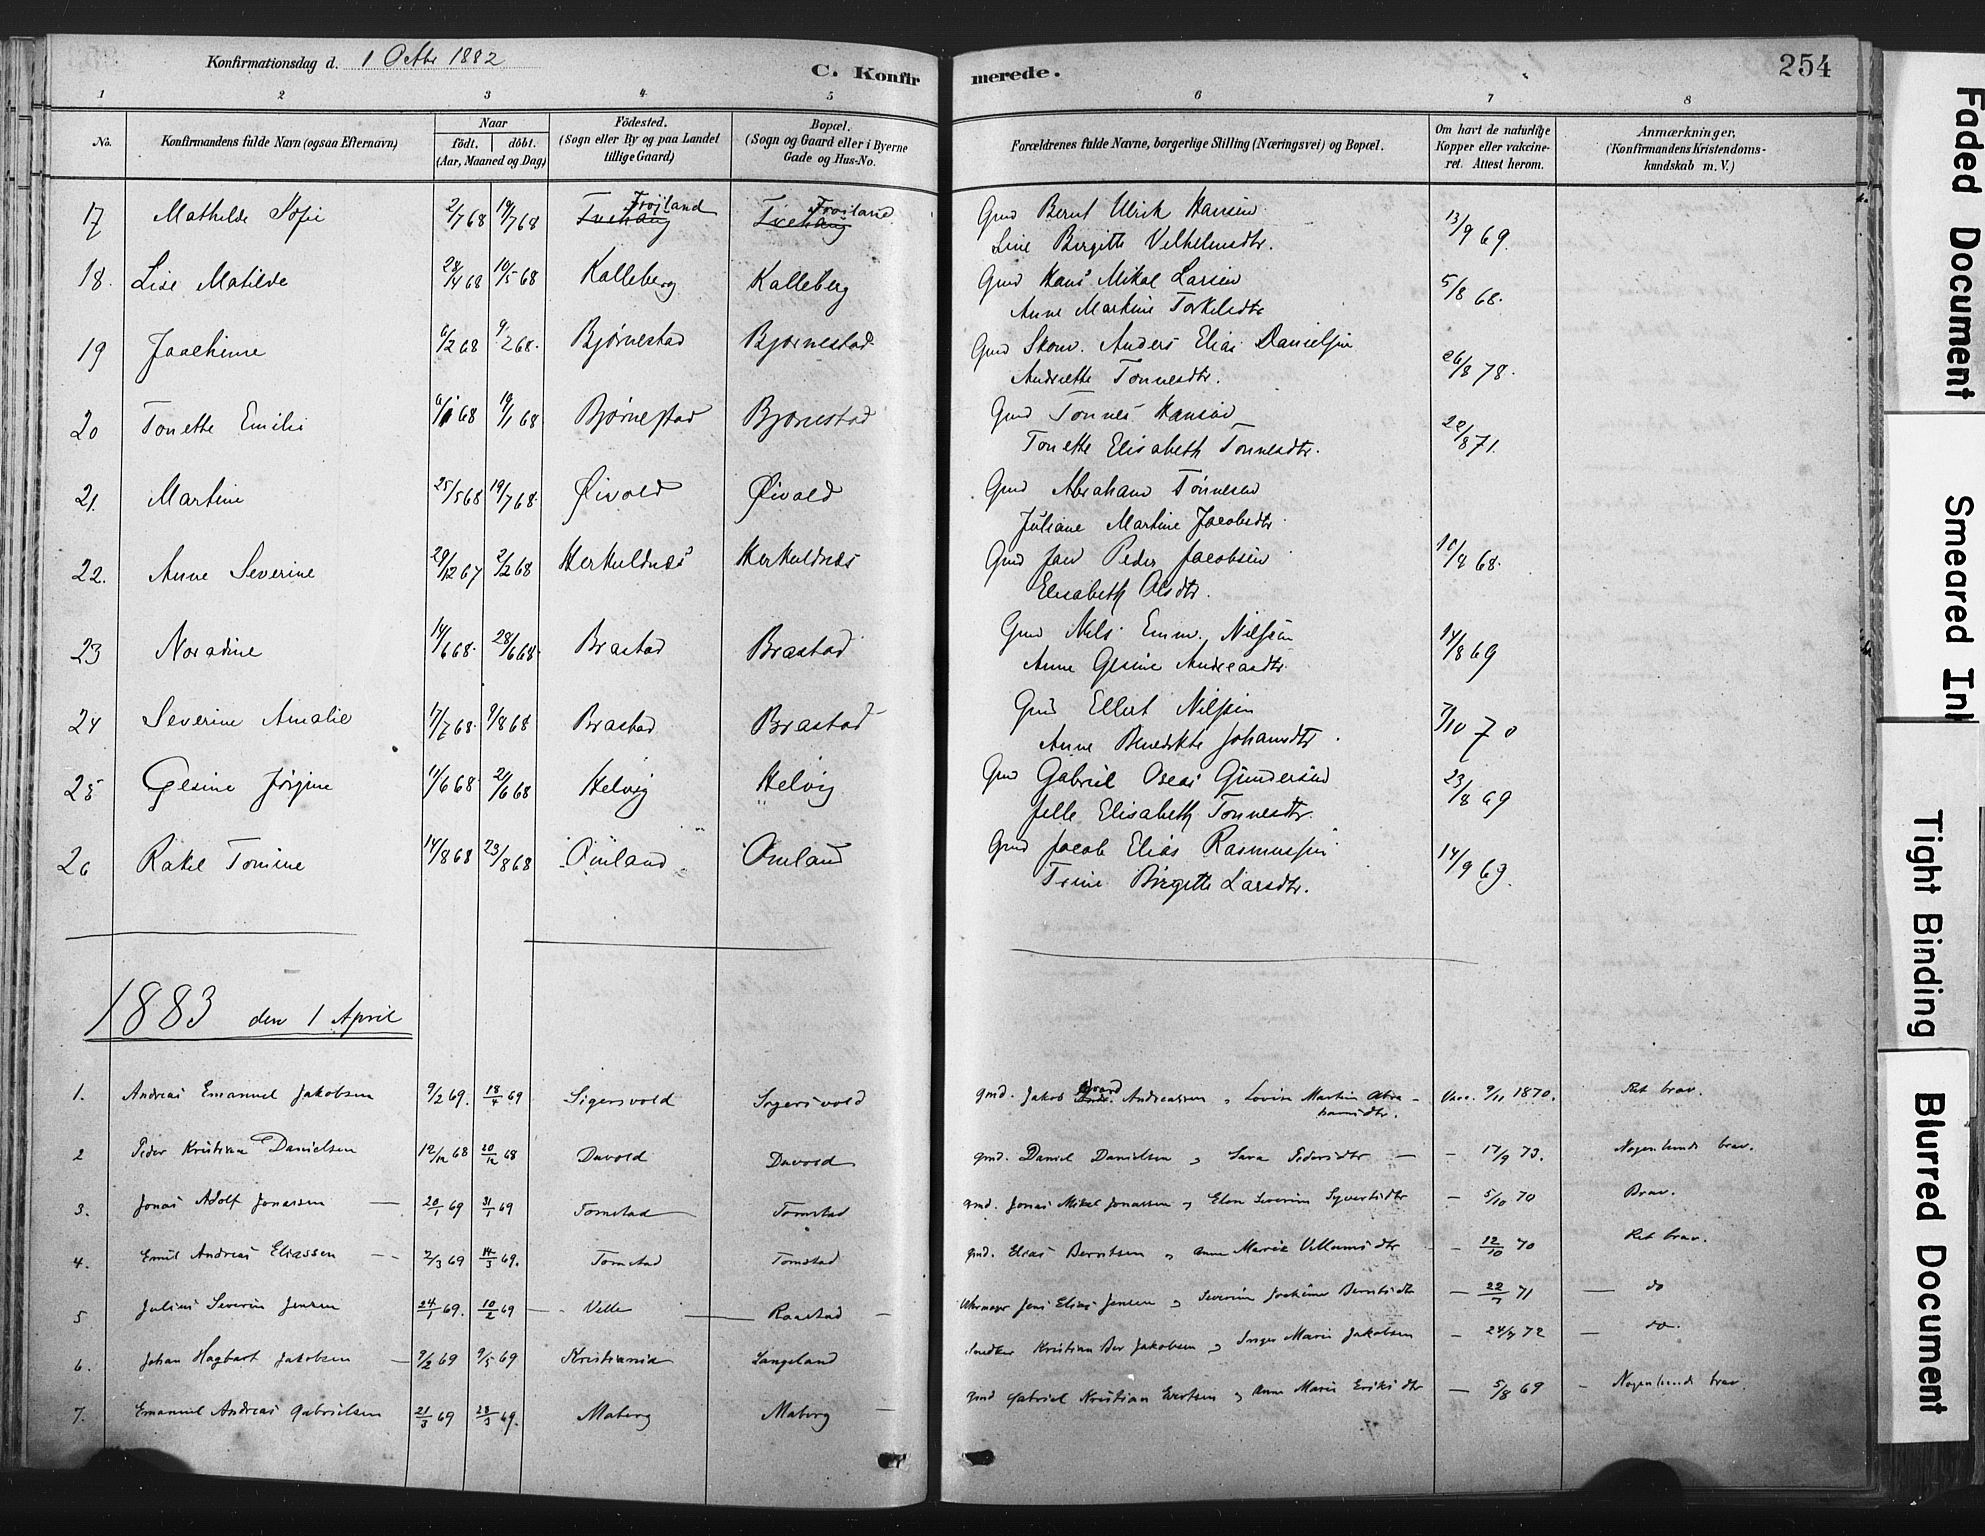 Konfirmationsdag d. 1 Octbr 1882
C. Konfirmerede.
254
1 2 3 4 5 6 7 8
No.
Konfirmandens fulde Navn (ogsaa Efternavn)
Naar
födt. döbt.
(Aar, Maaned og Dag)
Födested.
(Sogn eller By og paa Landet
tillige Gaard)
Bopæl.
(Sogn og Gaard eller i Byerne
Gade og Hus-No.
Forældrenes fulde Navne, borgerlige Stilling (Næringsvei) og Bopæl.
Om havt de naturlige
Kopper eller vakcine-
ret. Attest herom.
Anmærkninger.
(Konfirmandens Kristendoms-
kundskab m. V.)
17 Mathilde Sofie 2/7 68 19/7 68 Tvehaug Frøiland Tvehaug Frøiland Gmd Bernt Ulrik Hansen 13/9 69.
Line Birgitte Velhelmsdtr.
18. Lise Matilde 28/4 68 10/5 68 Kalleberg Kalleberg Gmd Hans Mikal Larsen 5/8 68.
Anne Martine Torkelsdtr
19 Joachime 6/2 68 9/2 68. Bjørnestad Bjørnestad Gmd Skom. Anders Elias Danielsen 26/8 78.
Andrette Tonnesdtr.
20 Tonette Emilie 6/1 68 19/1 68 Bjørnestad Bjørnestad Gmd Tonnes Hansen 22/8 71.
Tonette Elisabeth Tonnesdtr.
21. Martine 25/5 68 19/7 68. Øivold Øivold Gmd Abraham Tønnesen
Juliane Martine Jacobsdtr
22. Anne Severine 29/12 67 2/2 68 Herkuldnæs Herkuldnæs Gmd Jan Peder Jacobsen 10/8 68.
Elisabeth Olsdtr.
23 Noradine 14/6 68. 28/6 68. Brastad Brastad Gmd Nils Emm. Nilssen 14/8 69
Anne Gesine Andreasdtr.
24 Severine Amalie 17/7 68. 9/8 68 Brastad Brastad Gmd Ellert Nilssen 7/10 70
Anne Benedikte Johansdtr.
25 Gesine Jörgine 11/6 68 21/6 68 Helvig Helvig Gmd Gabriel Oseas Gundersen 23/8 69
Jelle Elisabeth Tonnesdtr.
26 Rakel Tomine 14/8 68 23/8 68 Omland Omland Gmd Jacob Elias Rasmussen 14/9 69.
Trine Birgitte Larsdtr.
1883 den 1 April
1. Andreas Emanuel Jakobsen 9/2 69. 18/4 69 Sigersvold Sigersvold gmd. Jakob Andreassen & Lovise Martine Abra- Vacc. 9/11 1870. Ret brav.
hamsdtr.
2 Peder Kristian Danielsen 12/12 68 20/12 68 Duvold Duvold gmd. Daniel Danielsen & Sara Pedersdtr — — 17/9 73. Nogenlunde brav.
3. Jonas Adolf Jonassen — 20/1 69 31/1 69 Tomstad Tomstad gmd. Jonas Mikal Jonassen & Elen Severine Syvertsdtr — 5/10 70 Brav.
4. Emil Andreas Eliassen — 2/3 69 14/3 69. Tomstad Tomstad gmd. Elias Berntsen & Anne Marie Villumsdtr — 12/10 70 Ret brav.
5 Julius Severin Jensen 24/1 69. 10/2 69 — Velle — Raastad — Uhrmager Jens Elias Jensen & Severine Joachime Berntsdtr — 22/7 71 — do
6. Johan Hagbart Jakobsen — 2/2 69 9/5 69 Kristiania Langeland Snedker Kristian Ber Jakobsen & Inger Marie Jakobsen — 24/9 72 — do.
7. Emanuel Andreas Gabrielsen 21/3 69 28/3 69. Maberg Maberg — gmd Gabriel Kristian Evertsen & Anne Marie Eriksdtr — 5/8 69 — Nogenlunde brav.
Faded Document
Smeared Ink
Tight Binding
Blurred Document